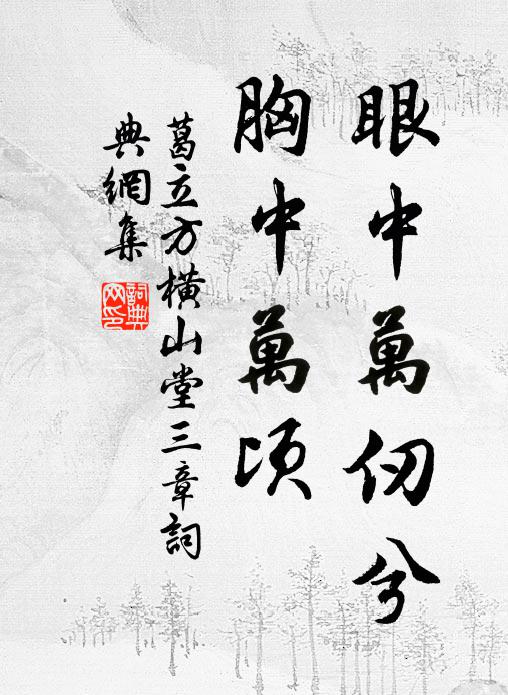 眼中萬仞兮
胸中萬頃
葛立方橫山堂三章詞
典網集
詞典網印